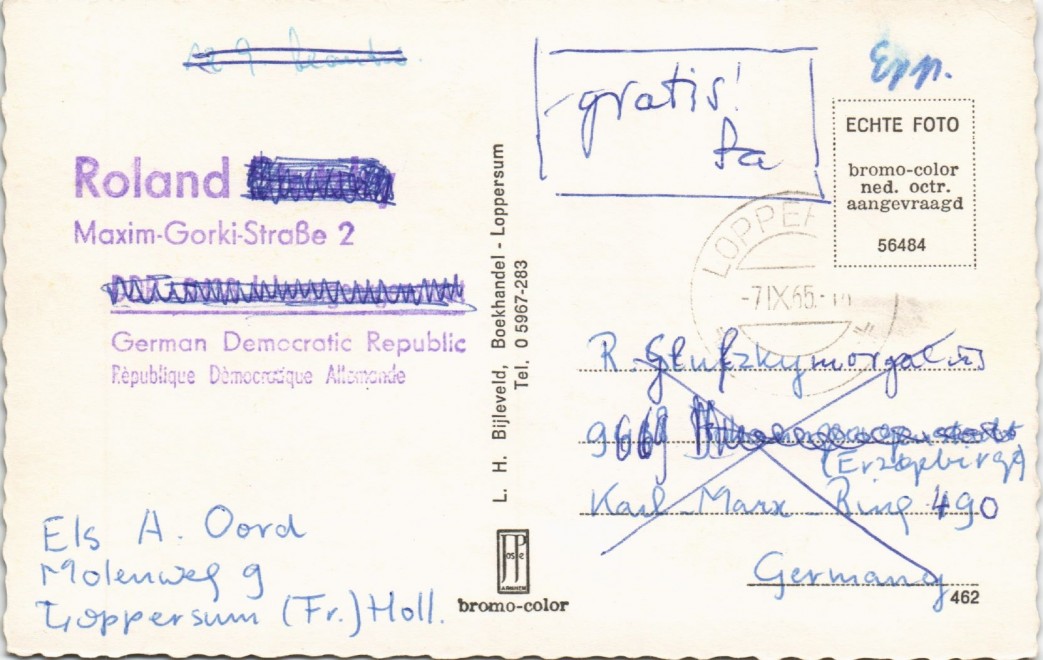 Roland
Maxim-Gorki-Straße 2
German Democratic Republic
République Démocratique Allemande
Els A. Oord
Molenweg 9
Loppersum (Fr.) Holl.
L. H. Bijleveld, Boekhandel - Loppersum
Tel. 0 5967-283
bromo-color
gratis!
Epp.
ECHTE FOTO
bromo-color
ned. octr.
aangevraagd
56484
LOPPER
-7 IX 65.
R.
(Erzgebirge)
Karl-Marx-Ring 490
Germany
462